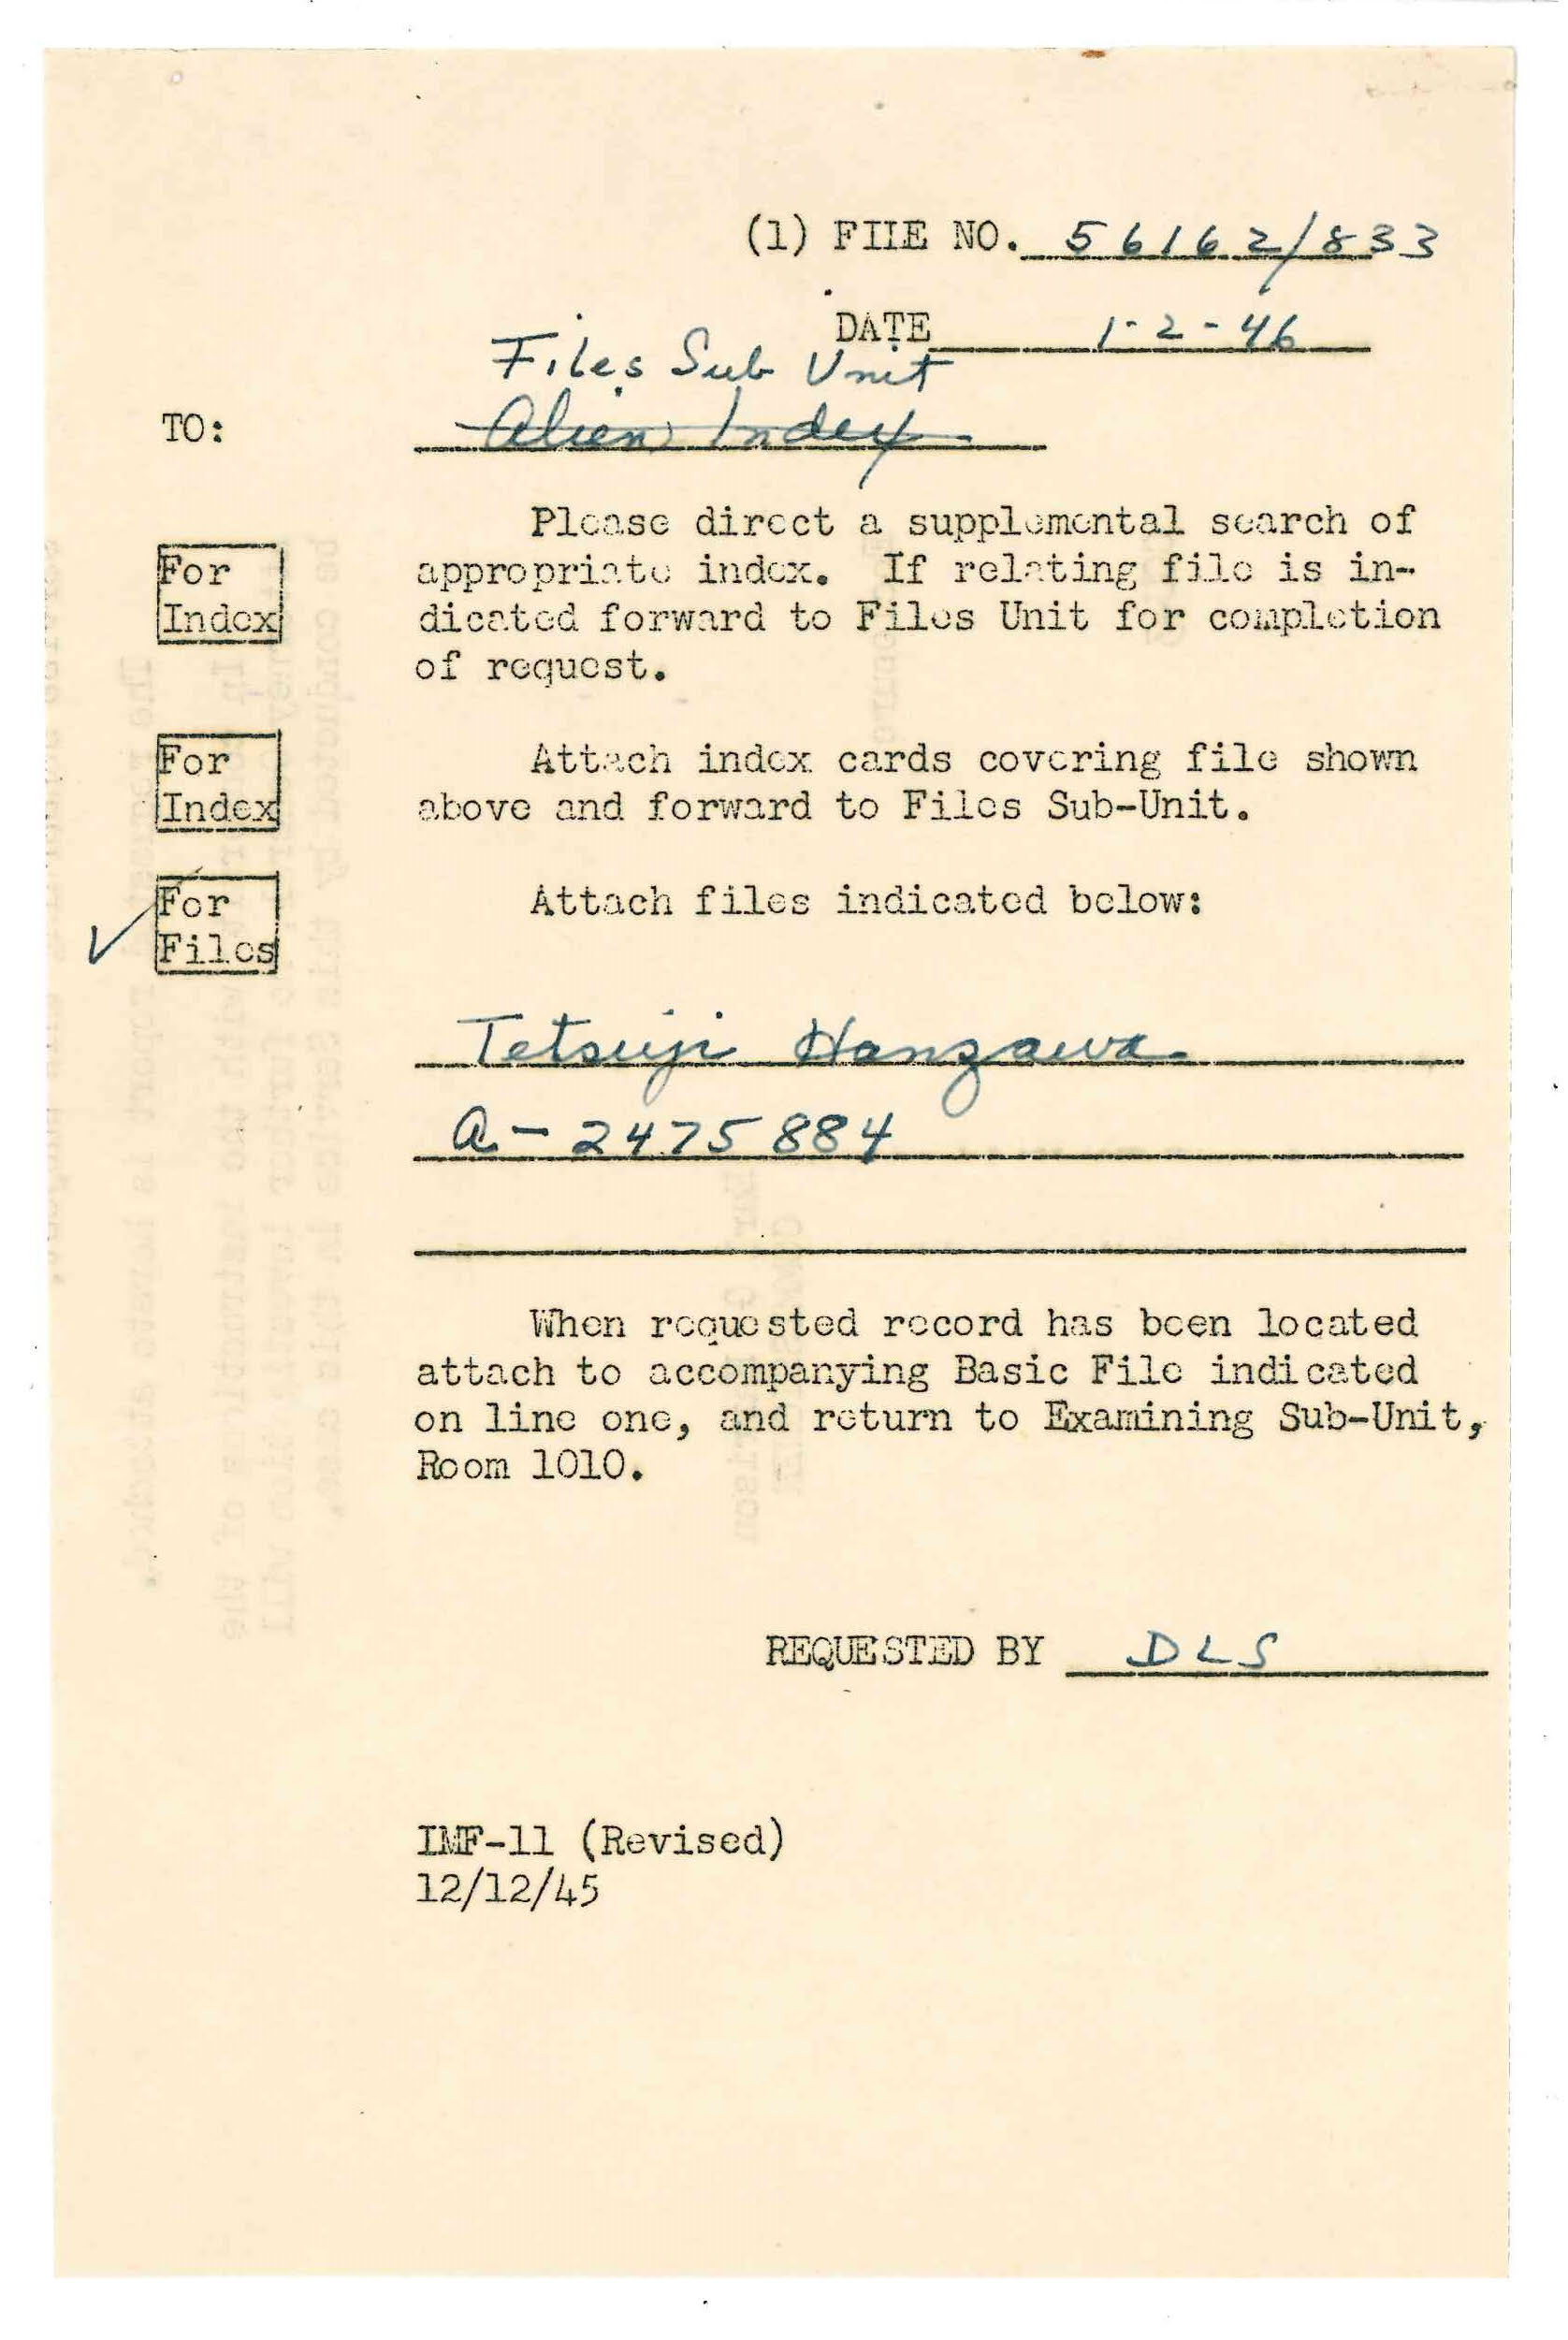 (1) FILE NO. 56162/833
DATE 1-2-46
Files Sub Unit
TO: Alien Index
Please direct a supplemental search of
For appropriate index. If relating file is in-
Index dicated forward to Files Unit for completion
of request.
For Attach index cards covering file shown
Index above and forward to Files Sub-Unit.
For Attach files indicated below:
✓ Files
Tetsuji Hanzawa
A-2475884
When requested record has been located
attach to accompanying Basic File indicated
on line one, and return to Examining Sub-Unit,
Room 1010.
REQUESTED BY DLS
IMF-11 (Revised)
12/12/45